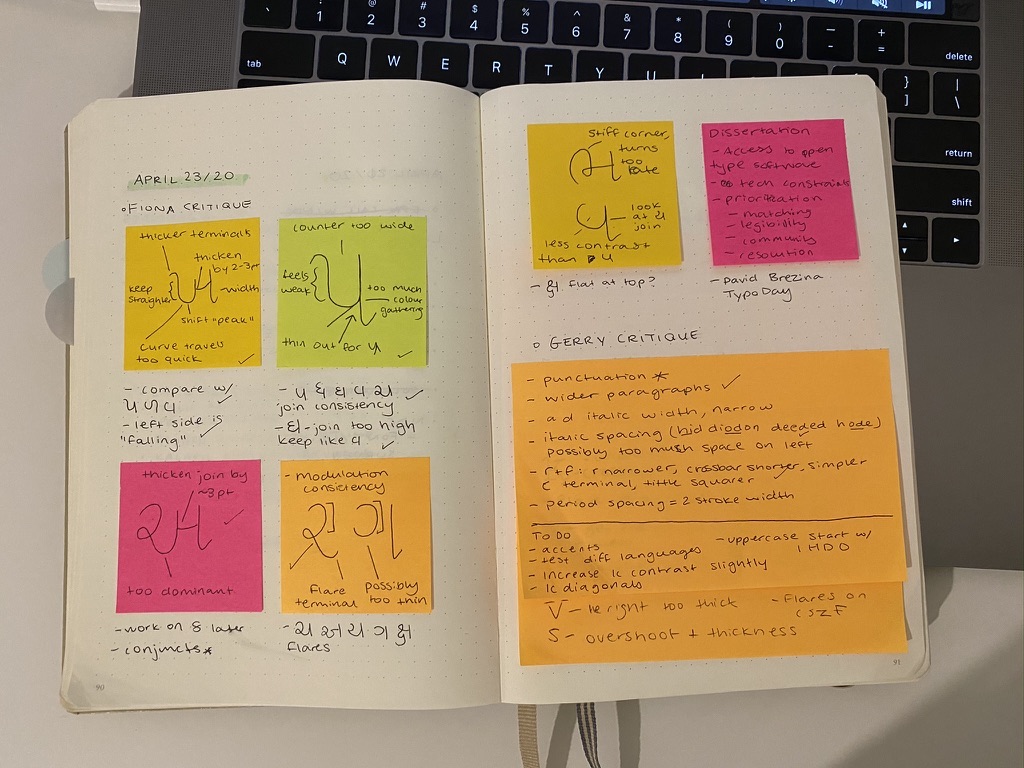 APRIL 23/20
FIONA CRITIQUE
thicker terminals
thicken
by 2-3pt
keep
straighter
width
shift "peak"
curve travels
too quick
- compare w/
પ ળ વ
- left side is
"falling"
counter too wide
feels
weak
too much
colour
gathering
thin out for પ
- પ દ્ય ઘ વ
join consistency
- join too high
keep like
thicken join by
~3pt
too dominant
- work on 8 later
- conjuncts*
- modulation
consistency
flare
terminal
possibly
too thin
flares
90
stiff corner,
turns
too
late
look
at
join
less contrast
than
- flat at top?
Dissertation
- Access to open
type software
- tech constraints
- prioritization
- matching
- legibility
- community
- resolution
- David Brezina
TypoDay
GERRY CRITIQUE
- punctuation *
- wider paragraphs
- a d italic width, narrow
- italic spacing (hid diodon deeded hode)
possibly too much space on left
- r+f: r narrower, crossbar shorter, simpler
c terminal, tittle squarer
- period spacing = 2 stroke width
TO DO
- accents
- test diff languages
- increase lc contrast slightly
- lc diagonals
- uppercase start w/
IHDO
V - the right too thick
- Flares on
CSZF
S - overshoot + thickness
91
~ ! 1 @ 2 # 3 $ 4 % 5 ^ 6 & 7 * 8 ( 9 ) 0 — - + = delete
tab Q W E R T Y U } ] | \
return
shift